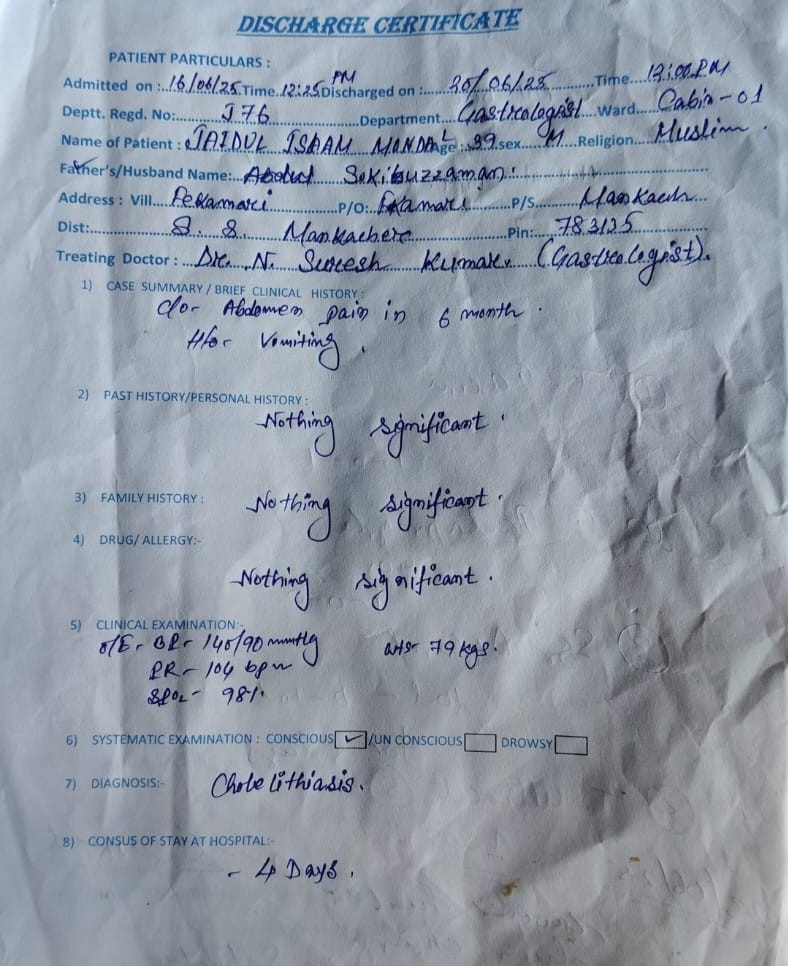 DISCHARGE CERTIFICATE
PATIENT PARTICULARS :
Admitted on :..16/06/25.Time..12:25 PM Discharged on :......20/06/25............Time....12:00 P.M
Deptt. Regd. No:..........J 76....................Department....Gastrologist...Ward.....Cabin-01
Name of Patient : JAIDUL ISLAM MONDAL Age : 39.sex....M...Religion.....Muslim.
Father's/Husband Name:...Abdul Sokibuzzaman.
Address : Vill....Pekamari..............P/O:..Ekamari.........P/S.........Mankach...
Dist:..............S. S. Mankacher..........................Pin:....783125..............
Treating Doctor : ..Dr. N. Suresh Kumar. (Gastrologist).
1) CASE SUMMARY / BRIEF CLINICAL HISTORY :
c/o- Abdomen pain in 6 month.
H/o- Vomiting.
2) PAST HISTORY/PERSONAL HISTORY :
Nothing significant.
3) FAMILY HISTORY : Nothing significant.
4) DRUG/ ALLERGY:-
Nothing significant.
5) CLINICAL EXAMINATION:-
O/E- BP- 140/90 mmHg wt- 79 kgs.
PR- 104 bpm
SPO2- 98%
6) SYSTEMATIC EXAMINATION : CONSCIOUS ✓ /UN CONSCIOUS DROWSY
7) DIAGNOSIS:- Cholelithiasis.
8) CONSUS OF STAY AT HOSPITAL:-
- 4 Days.